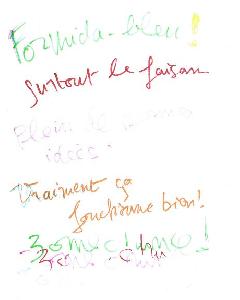 Formida-bleu!
surtout le faisan
Plein de bonnes
idées!
Vraiment ça
fonctionne bien!